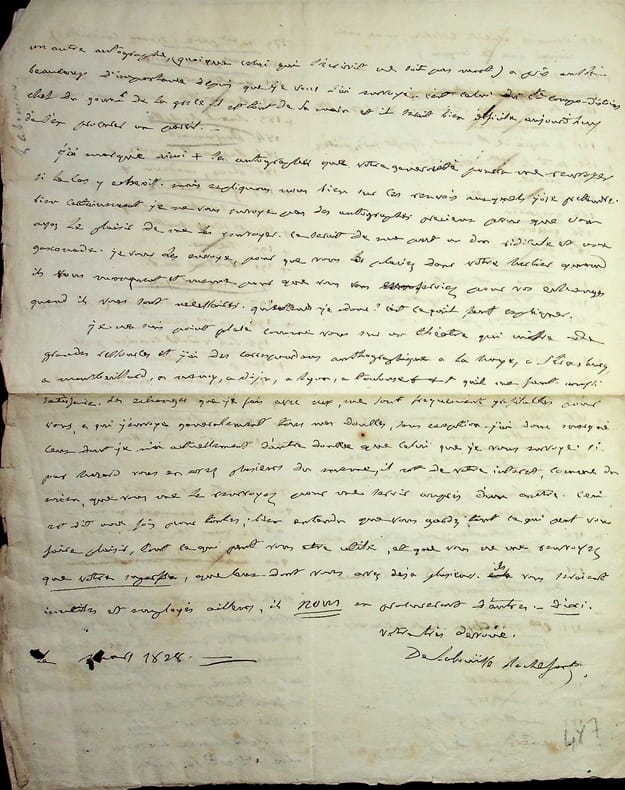 un autre autographe, (quoique celui qui l'écrivit ne soit pas mort) a pris
beaucoup d'importance depuis que je vous l'ai envoyé. c'est celui
chef du gouvt de la grèce il est de sa main et il serait bien difficile aujourd'huy
d'en procurer un pareil. —
j'ai marqué ainsi + les autographes que votre générosité pourra me renvoyer
si le cas y échoit. mais expliquons nous bien sur ces renvois auxquels j'ose prétendre.
bien certainement je ne vous envoye pas des autographes précieux pour que vous
ayez le plaisir de me les renvoyer. ce serait de ma part un don ridicule et une
gasconade. je vous les envoye, pour que vous les placiez dans votre herbier quand
ils vous manquent et même pour que vous vous en serviez pour vos échanges
quand ils vous sont nécessaires. qu'entends je donc? c'est ce qu'il faut expliquer.
je ne suis point placé comme vous sur un théâtre qui offre de
grandes ressources et j'ai des correspondans autographiques a la haye, a Strasbourg
a montbeillard, a nancy, a dijon, a lyon, a toulouse + + + qu'il me faut aussi
satisfaire. des échanges que je fais avec eux, me sont fréquemment profitables pour
vous, a qui j'envoye généralement tous mes doubles, sans exception. j'ai donc marqué
ceux dont je n'ai actuellement d'autre double que celui que je vous envoye. si
par hazard vous en avez plusieurs du même, il est de votre intérêt, comme du
mien, que vous me le renvoyez pour me servir auprès d'un autre. ceci
est dit une fois pour toutes. bien entendu que vous gardez tout ce qui peut vous
faire plaisir, tout ce qui peut vous être utile, et que vous ne me renvoyez
que votre superflu, que ceux dont vous avez deja plusieurs. ils vous seraient
inutiles et employés ailleurs, ils nous en procureront d'autres
votre très dévoué.
le mars 1828.
De Labouïsse Rochefort
487